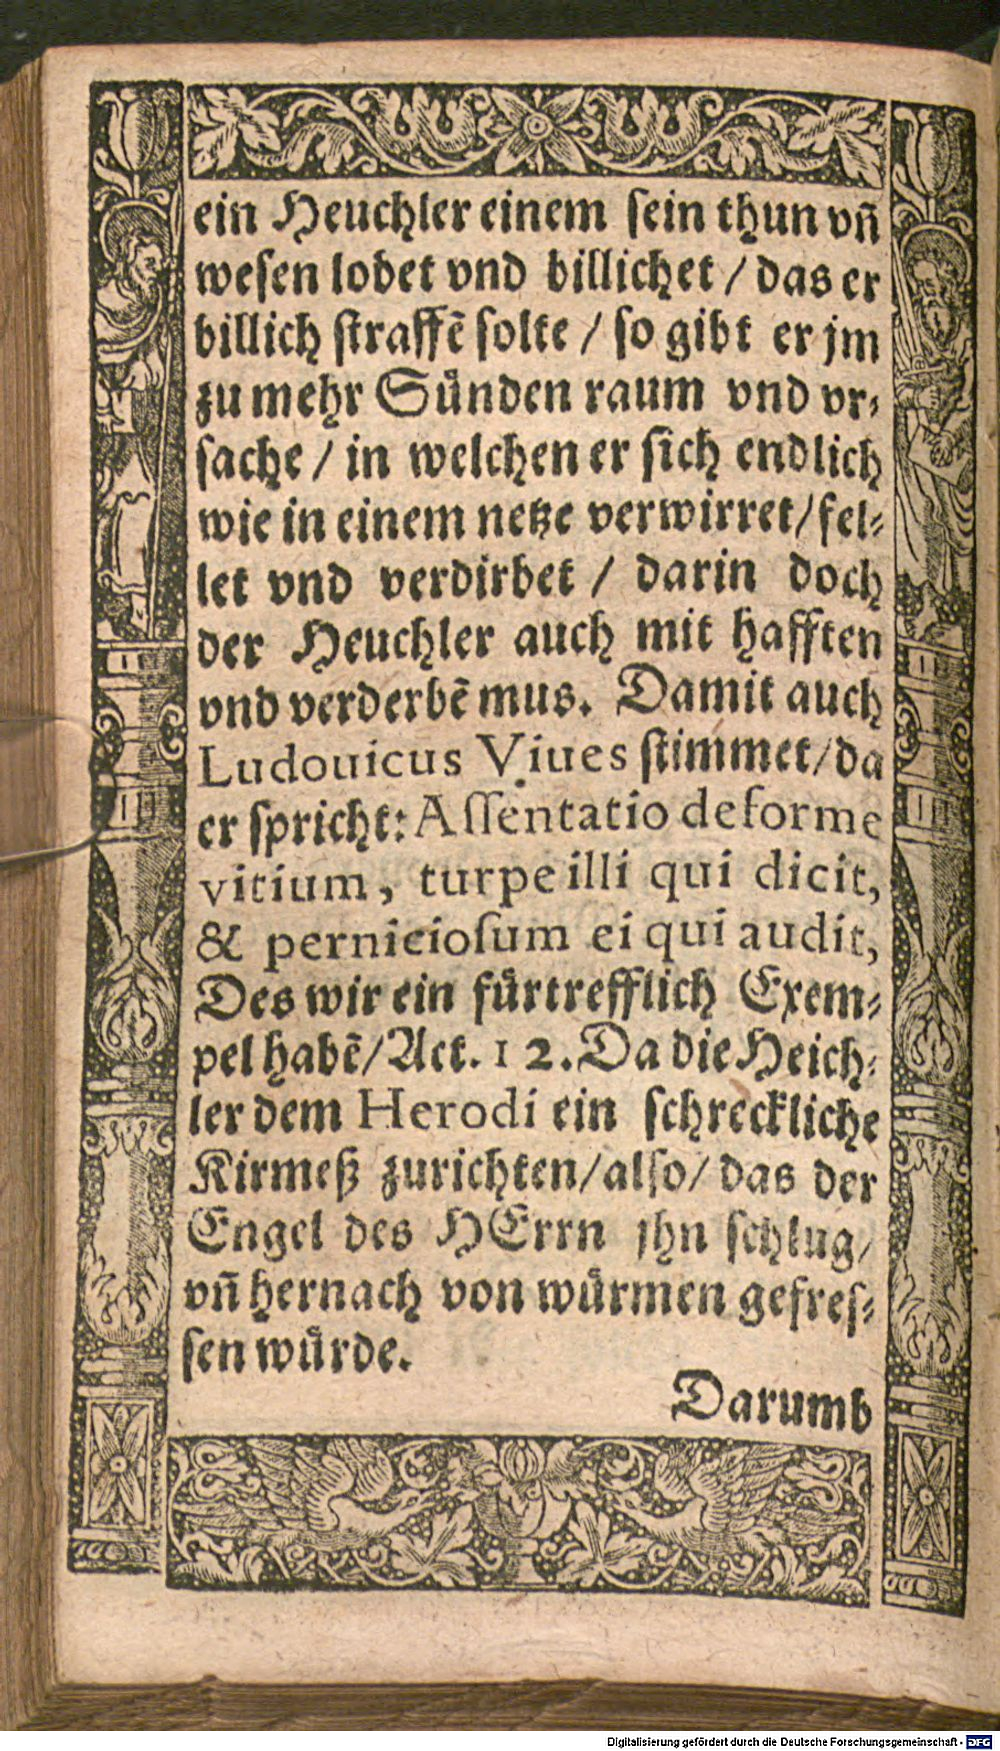 ein Heuchler einem sein thun vñ
wesen lobet vnd billichet / das er
billich straffẽ solte / so gibt er jm
zu mehr Sünden raum vnd vr⸗
sache / in welchen er sich endlich
wie in einem netze verwirret/fel⸗
let vnd verdirbet / darin doch
der Heuchler auch mit hafften
vnd verderbẽ mus. Damit auch
Ludouicus Viues stimmet/da
er spricht: Assentatio deforme
vitium, turpe illi qui dicit,
& pernieiosum ei qui audit,
Des wir ein fürtrefflich Exem⸗
pel habẽ/Act. 12. Da die Heich⸗
ler dem Herodi ein schreckliche
Kirmeß zurichten/also/ das der
Engel des HErrn jhn schlug/
vñ hernach von würmen gefres⸗
sen würde.
Darumb
Digitalisierung gefördert durch die Deutsche Forschungsgemeinschaft - DFG